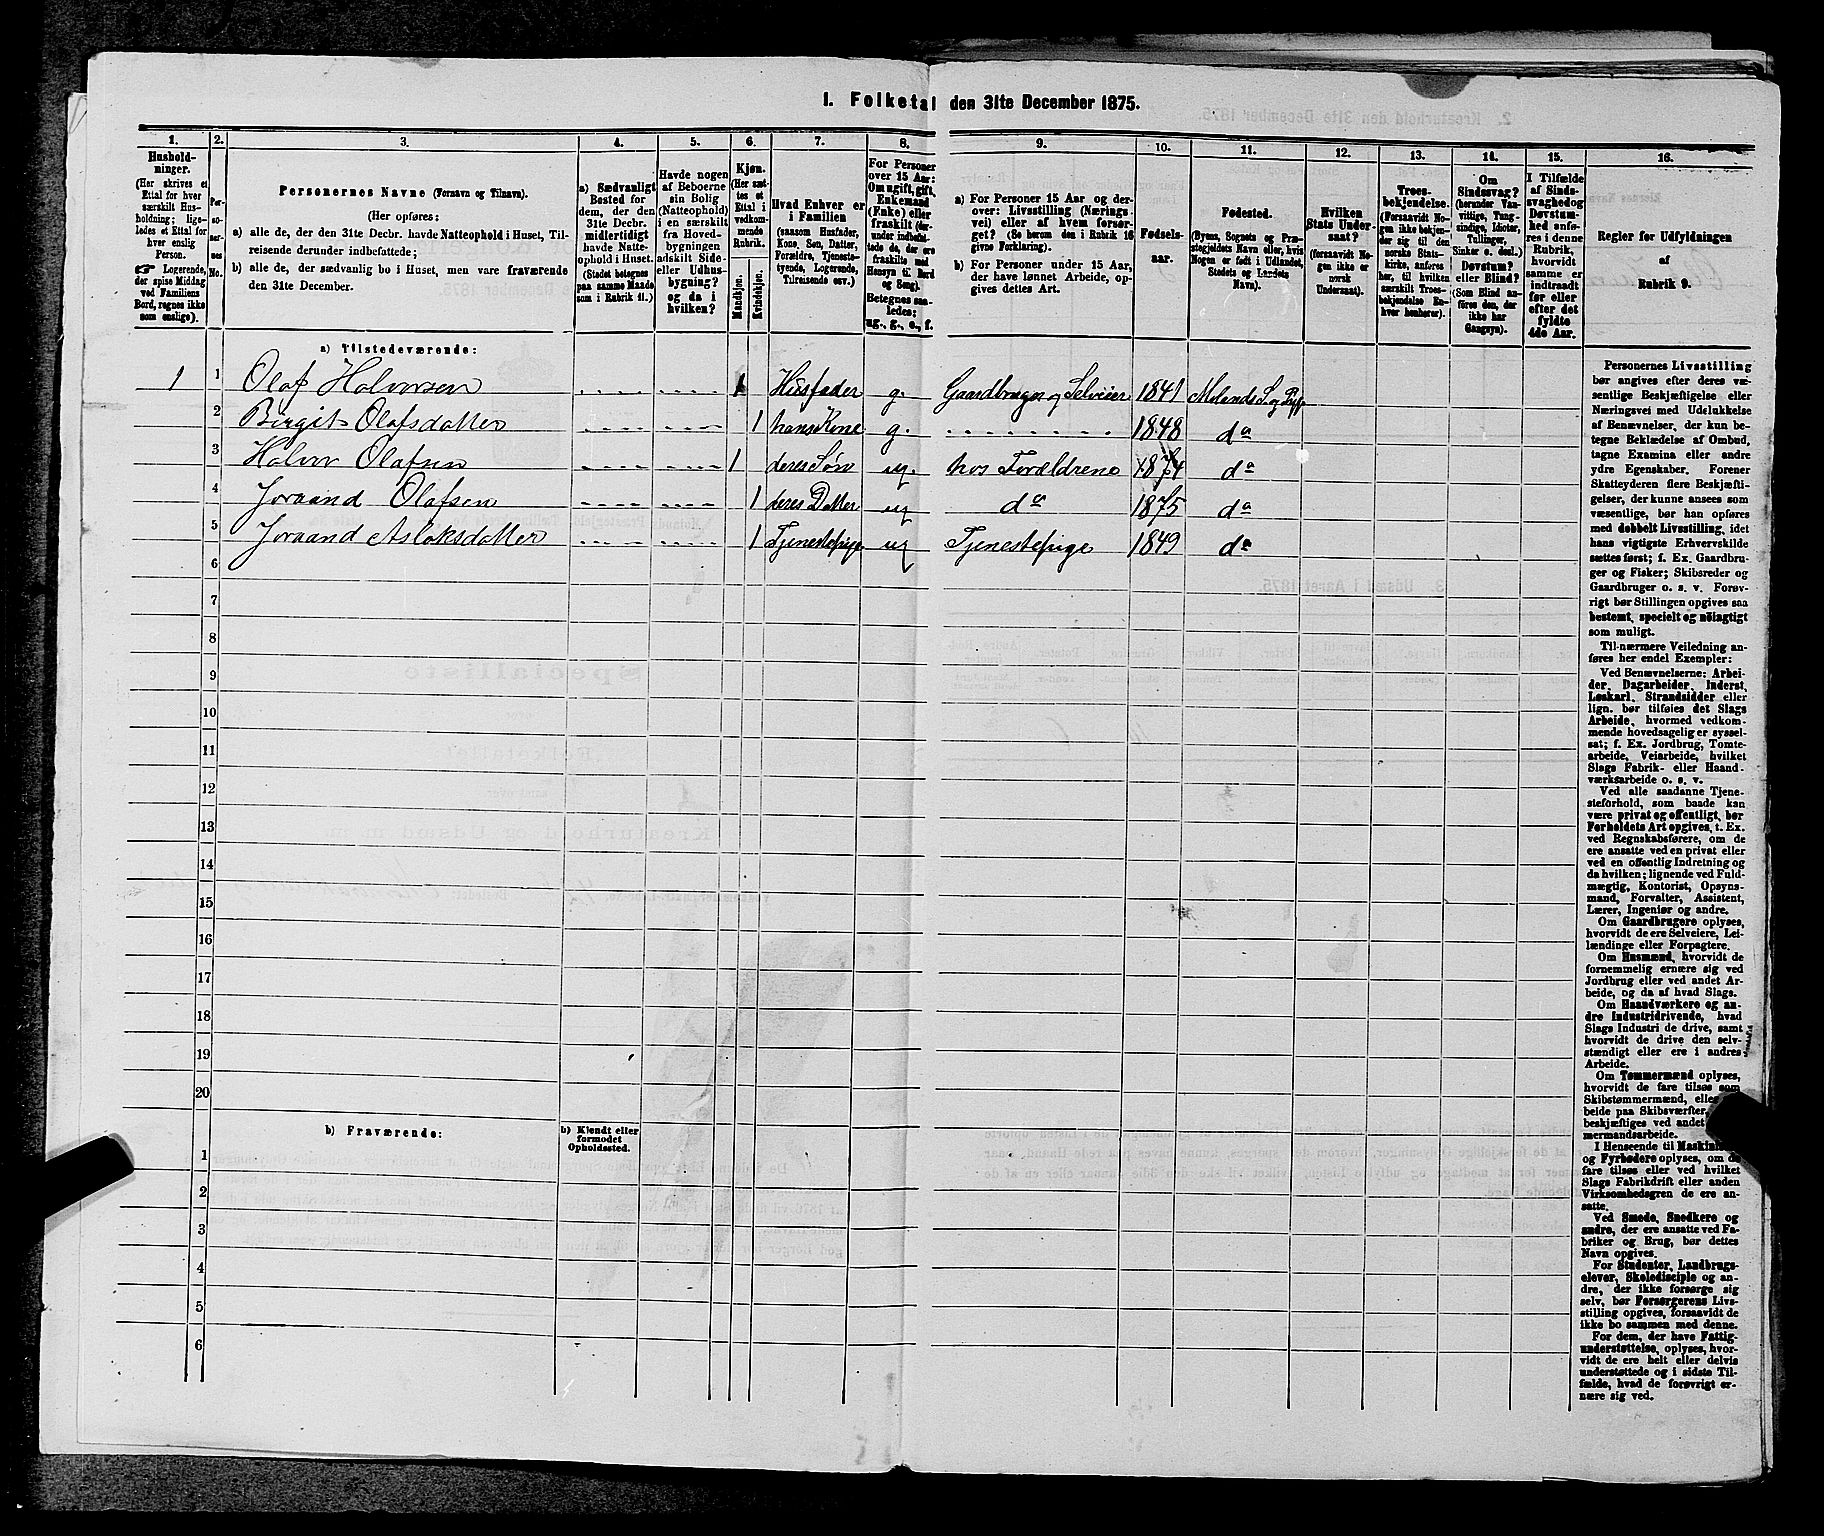 I. Folketal den 31te December 1875.
1.
2.
3.
4.
5.
6.
7.
8.
9.
10.
11.
12.
13.
14.
15.
16.
Hushold-
ninger.
(Her skrives et
Ettal for hver
særskilt Hus-
holdning; lige-
ledes et Ettal for
hver enslig
Person.
☞ Logerende,
der spise Middag
ved Familiens
Bord, regnes ikke
som enslige).
Per-
so-
ner-
nes
No.
Personernes Navne (Fornavn og Tilnavn).
(Her opføres:
a) alle de, der den 31te Decbr. havde Natteophold i Huset, Til-
reisende derunder indbefattede;
b) alle de, der sædvanlig bo i Huset, men vare fraværende
den 31te December.
a) Sædvanligt
Bosted for
dem, der den
31te Decbr.
midlertidigt
havde Natte-
ophold i Huset.
(Stedet betegnes
paa samme Maade
som i Rubrik 11.)
Havde nogen
af Beboerne
sin Bolig
(Natteophold)
i en særskilt
fra Hoved-
bygningen
adskilt Side-
eller Udhus-
bygning?
og da i
hvilken?
Kjøn.
(Her sæt-
tes et
Ettal i
vedkom-
mende
Rubrik.
Mandkjøn.
Kvindekjøn.
Hvad Enhver er
i Familien
(saasom Husfader,
Kone, Søn, Datter,
Forældre, Tjeneste-
tyende, Logerende,
Tilreisende osv.)
For Personer
over 15 Aar:
Om ugift, gift,
Enkemand
(Enke) eller
fraskilt (der-
under indbehol-
dede de, der ere
fraskilte med
Hensyn til Bord
og Seng).
Betegnes saa-
ledes:
ug., g., e., f.
a) For Personer 15 Aar og der-
over: Livsstilling (Nærings-
vei) eller af hvem forsør-
get? (Se herom den i Rubrik 16
givne Forklaring).
b) For Personer under 15 Aar,
der have lønnet Arbeide, op-
gives dettes Art.
Fødsels-
aar.
Fødested.
(Byens, Sognets og Præ-
stegjeldets Navn eller, hvis
Nogen er født i Udlandet,
Stedets og Landets
Navn).
Hvilken
Stats Under-
saat?
(forsaavidt No-
gen ikke er
norsk
Undersaat).
Troes-
bekjendelse.
(Forsaavidt No-
gen ikke bekjen-
der sig til den
norske Stats-
kirke, anføres
her, til hvilken
særskilt Troes-
bekjendelse En-
hver henhører).
Om
Sindssvag?
(herunder Van-
vittige, Tung-
sindige, Idioter,
Tullinger,
Sinker o. desl.)
Døvstum?
eller Blind?
(Som Blind an-
føres den, der
ikke har
Gangsyn).
I Tilfælde
af Sinds-
svaghed og
Døvstum-
hed anfø-
res i denne
Rubrik,
hvorvidt
samme er
indtraadt
før eller
efter det
fyldte
4de Aar.
Regler for Udfyldningen
af
Rubrik 9.
a) Tilstedeværende:
1 1 Olaf Halvorsen 1 Husfader g. Gaardbruger og Selveier 1841 Molands S. og Pgj
2 Birgit Olafsdatter 1 hans Kone g. 1848 do
3 Halvor Olafsen 1 deres Søn ug. hos Forældrene 1874 do
4 Joraand Olafsen 1 deres Datter ug do 1875 do
5 Joraand Aslaksdatter 1 Tjenestepige ug Tjenestepige 1849 do
6
7
8
9
10
11
12
13
14
15
16
17
18
19
20
b) Fraværende:
b) Kjendt eller
formodet
Opholdssted.
1
2
3
4
5
6
Personernes Livsstilling
bør angives efter deres væ-
sentlige Beskjæftigelse eller
Næringsvei med Udelukkelse
af Benævnelser, der kun be-
tegne Beklædelse af Ombud,
tagne Examina eller andre
ydre Egenskaber. Forener
Skatteyderen flere Beskjæfti-
gelser, der kunne ansees som
væsentlige, bør han opføres
med dobbelt Livsstilling, idet
hans vigtigste Erhvervskilde
sættes først; f. Ex. Gaardbru-
ger og Fisker; Skibsreder og
Gaardbruger o. s. v. Forøv-
rigt bør Stillingen opgives saa
bestemt, specielt og nöiagtigt
som muligt.
Til nærmere Veiledning an-
føres her endel Exempler:
Ved Benævnelserne: Arbei-
der, Dagarbeider, Inderst,
Løskarl, Strandsidder eller
lign. bør tilføies det Slags
Arbeide, hvormed vedkom-
mende hovedsagelig er syssel-
sat; f. Ex. Jordbrug, Tomte-
arbeide, Veiarbeide, hvilket
Slags Fabrik- eller Haand-
værksarbeide o. s. v.
Ved alle saadanne Tjene-
steforhold, som baade kan
være privat og offentligt, bør
Forholdets Art opgives, t. Ex.
ved Regnskabsførere, om de
ere ansatte ved en privat eller
ved en offentlig Indretning og
da hvilken; lignende ved Fuld-
mægtig, Kontorist, Opsyns-
mand, Forvalter, Assistent,
Lærer, Ingeniør og andre.
Om Gaardbrugere oplyses,
hvorvidt de ere Selveiere, Lei-
lændinge eller Forpagtere.
Om Husmænd, hvorvidt de
fornemmelig ernære sig ved
Jordbrug eller ved andet Ar-
beide, og da af hvad Slags.
Om Haandværkere og an-
dre Industridrivende, hvad
Slags Industri de drive, samt
hvorvidt de drive den selv-
stændigt eller ere i andres
Arbeide.
Om Tømmermænd oplyses,
hvorvidt de fare tilsøs som
Skibstømmermænd, eller
beide paa Skibsværfter,
beskjæftiges ved andet
mermandsarbeide.
I Henseende til
og Fyrbødere oplyses, om de
fare tilsøs eller ved hvilket
Slags Fabrikdrift eller anden
Virksomhedsgren de ere an-
satte.
Ved Smede, Snedkere og
andre, der ere ansatte ved Fa-
briker og Brug, bør dettes
Navn opgives.
For Studenter, Landbrugs-
elever, Skoledisciple og an-
dre, der ikke forsørge sig
selv, bør Forsørgerens Livs-
stilling opgives, forsaavidt de
ikke bo sammen med denne.
For dem, der have Fattig-
understøttelse, oplyses, hvor-
vidt de ere helt eller delvis
understøttede og i sidste Til-
fælde, hvad de forøvrigt er-
nære sig ved.